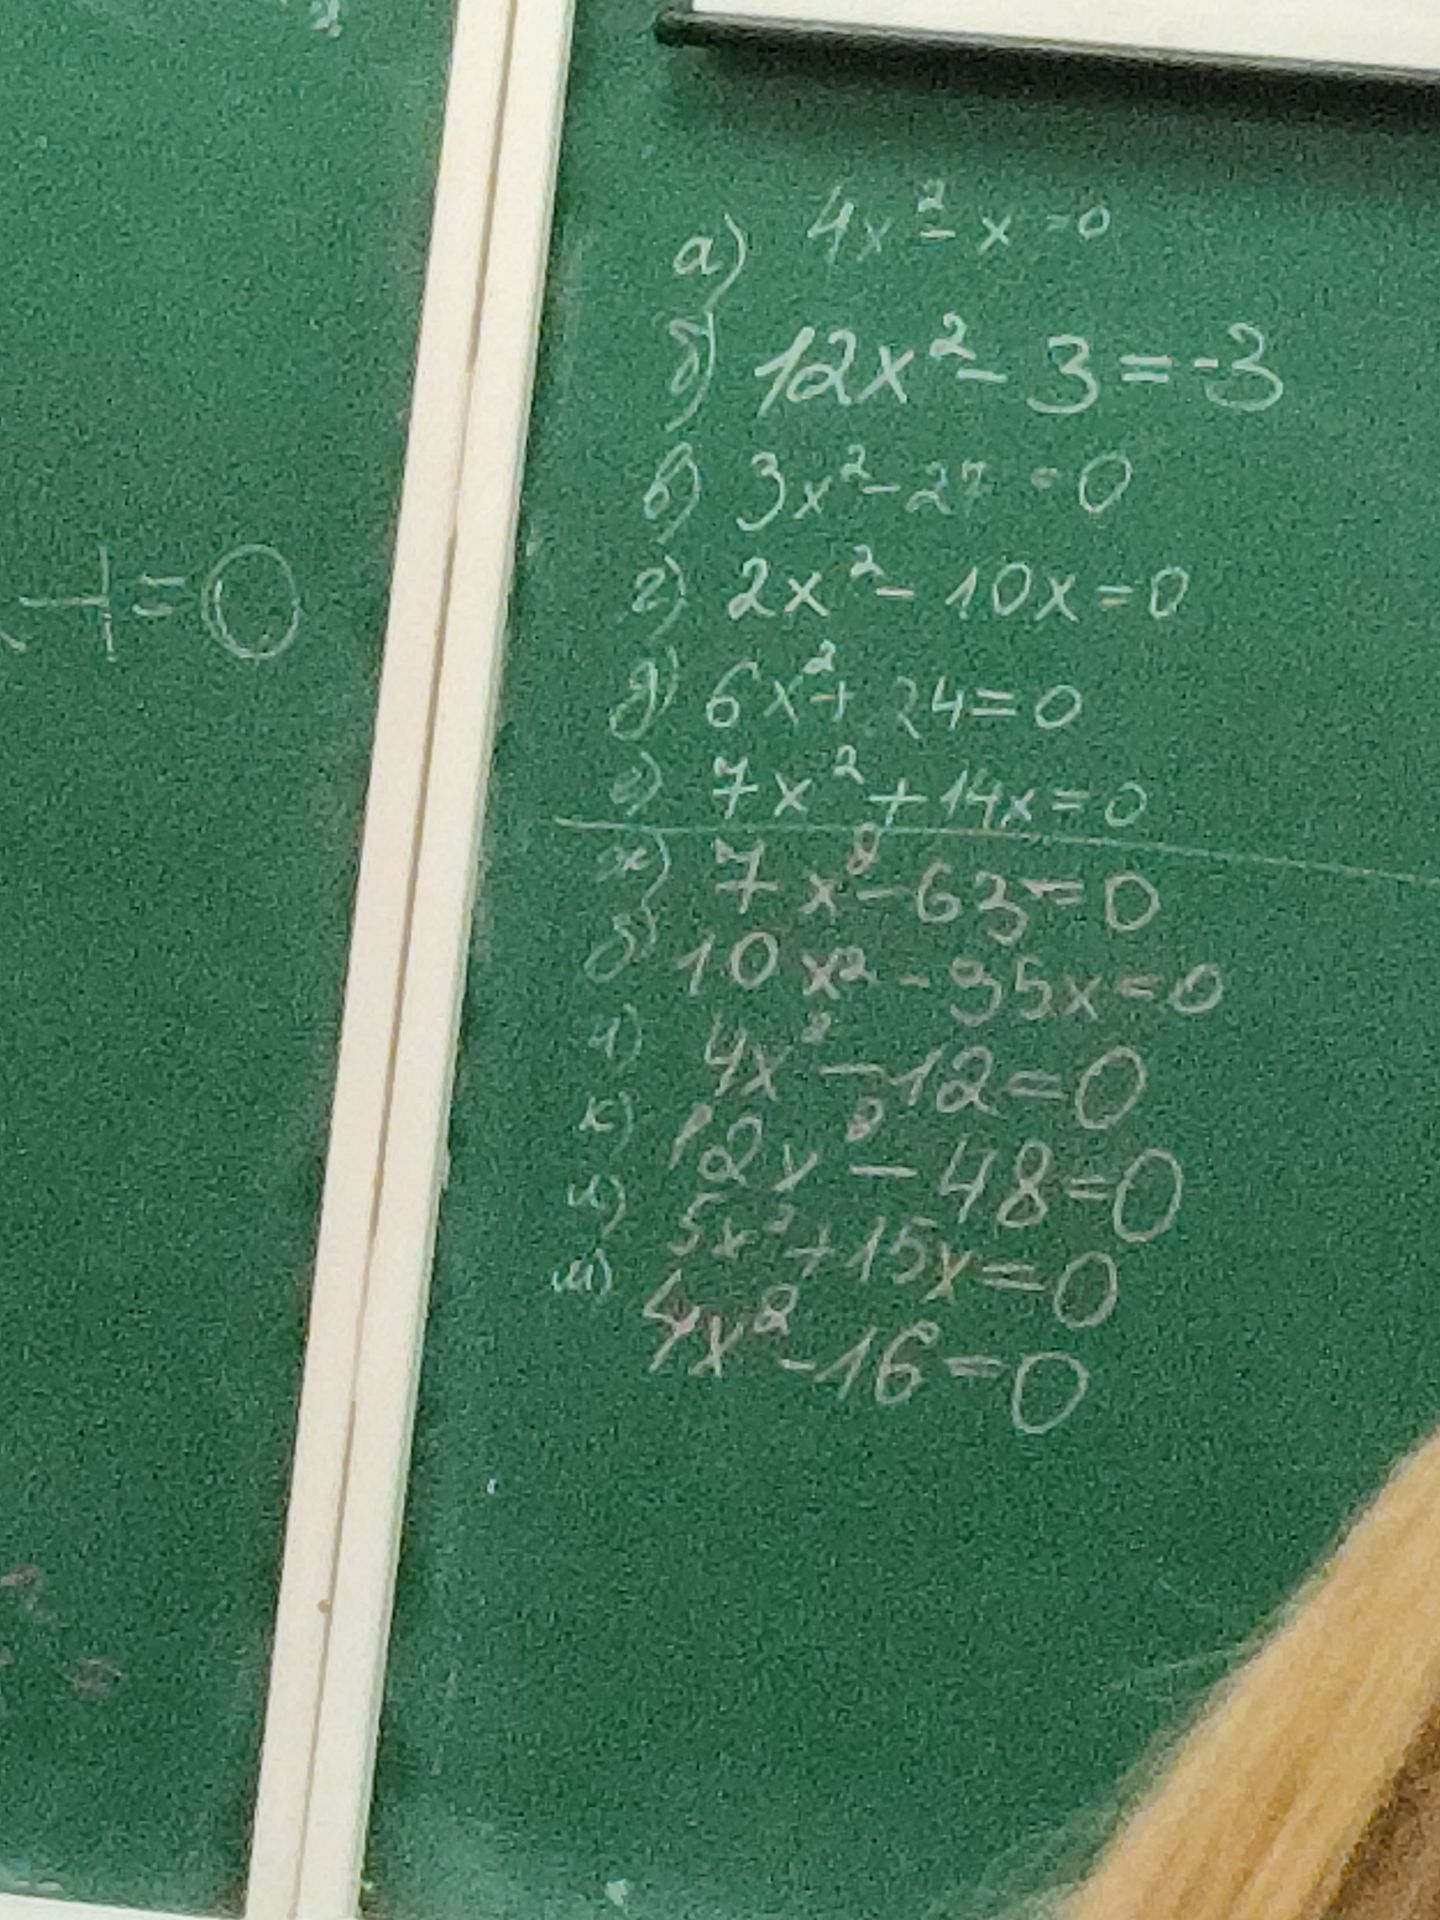 +=0
а) 4x² - x = 0
б) 12x² - 3 = -3
в) 3x² - 27 = 0
г) 2x² - 10x = 0
д) 6x² + 24 = 0
е) 7x² + 14x = 0
ж) 7x² - 63 = 0
10x² - 35x = 0
4x² - 12 = 0
к) 12x² - 48 = 0
5x² + 15x = 0
м) 4x² - 16 = 0